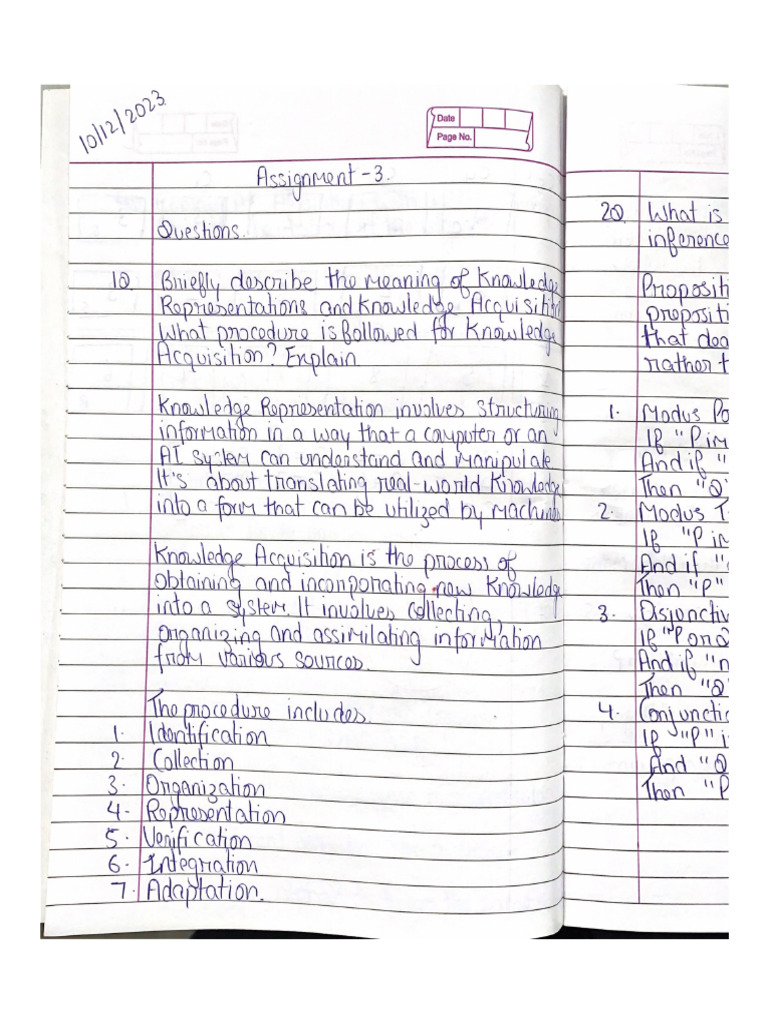 10/12/2023
Date
Page No.
Assignment - 3.
Questions.
1Q. Briefly describe the meaning of Knowledge
Representations and Knowledge Acquisition
What procedure is followed for Knowledge
Acquisition? Explain
Knowledge Representation involves structuring
information in a way that a computer or an
AI system can understand and manipulate
It's about translating real-world Knowledge
into a form that can be utilized by machines
Knowledge Acquisition is the process of
obtaining and incorporating new Knowledge
into a system. It involves collecting,
organizing and assimilating information
from various sources.
The procedure includes.
1. Identification
2. Collection
3. Organization
4. Representation
5. Verification
6. Integration
7. Adaptation.
2Q. What is
inference
Propositi
prepositi
that dea
rather t
1. Modus Po
If "P im
And if "
Then "Q"
2. Modus T
If "P im
And if "
Then "P"
3. Disjunctiv
If "P or Q
And if "n
Then "Q"
4. Conjunctio
If "P" i
And "Q
Then "P